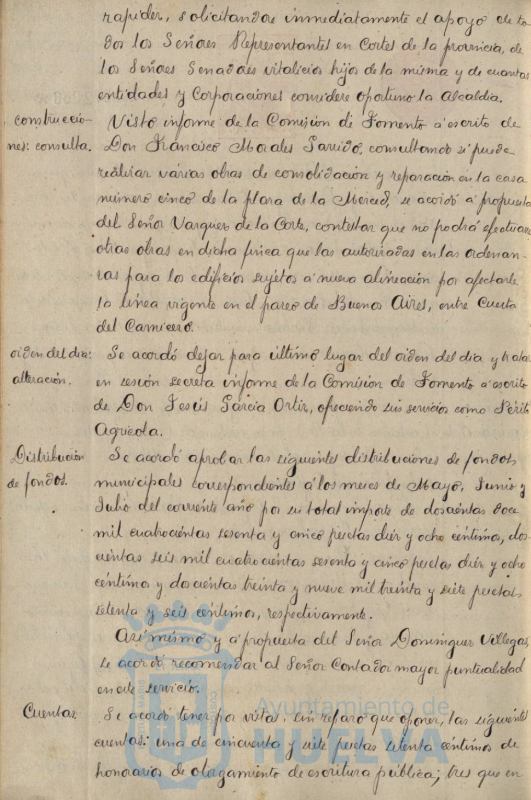 rapidez, solicitandose inmediatamente el apoyo de to-
dos los Señores Representantes en Cortes de la provincia, de
los Señores Senadores vitalicios hijos de la misma y de cuantas
entidades y Corporaciones considere oportuno la Alcaldia.
construccio-
nes: consulta.
Visto informe de la Comision de Fomento á escrito de
Don Francisco Morales Garrido, consultando si puede
realizar varias obras de consolidación y reparación en la casa
número cinco de la plaza de la Merced, se acordó á propuesta
del Señor Vazquez de la Corte, contestar que no podrá efectuar
otras obras en dicha finca que las autorizadas en las ordenan-
zas para los edificios sujetos á nueva alineación por afectarle
la linea vigente en el paseo de Buenos Aires, entre Cuesta
del Carnicero.
orden del dia:
alteración.
Se acordó dejar para último lugar del orden del dia y tratar
en sesión secreta informe de la Comision de Fomento á escrito
de Don Jesús Garcia Ortiz, ofreciendo sus servicios como Périto
Agricola.
Distribución
de fondos.
Se acordó aprobar las siguientes distribuciones de fondos
municipales correspondientes á los meses de Mayo, Junio y
Julio del corriente año por su total importe de doscientas doce
mil cuatrocientas sesenta y cinco pesetas diez y ocho centimos, dos-
cientas seis mil cuatrocientas sesenta y cinco pesetas diez y ocho
centimos y doscientas treinta y nueve mil treinta y siete pesetas
setenta y seis centimos, respectivamente.
Asi mismo y á propuesta del Señor Dominguez Villegas,
se acordó recomendar al Señor Contador mayor puntualidad
en este servicio.
Cuentas.
Se acordó tener por vistas, sin reparo que oponer, las siguientes
cuentas: una de cincuenta y siete pesetas setenta centimos de
honorarios de otorgamiento de escritura pública; tres que en
Ayuntamiento de
HUELVA